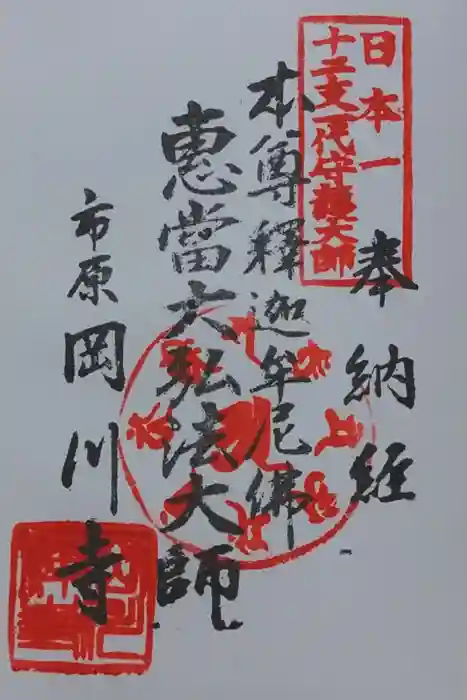 日本一
十二支一代守護大師
奉納経
本尊釋迦牟尼佛
恵當大弘法大師
市原岡川寺